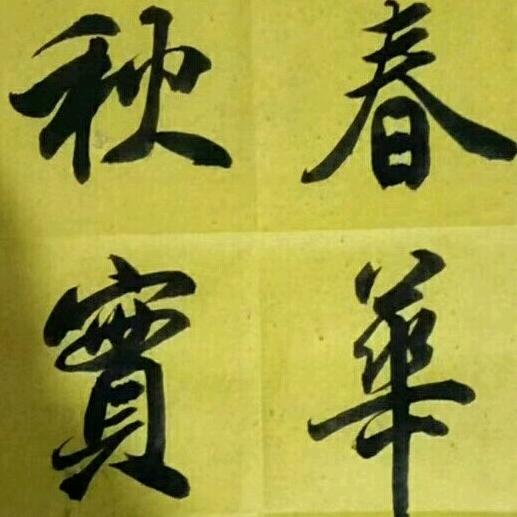 春華
秋實